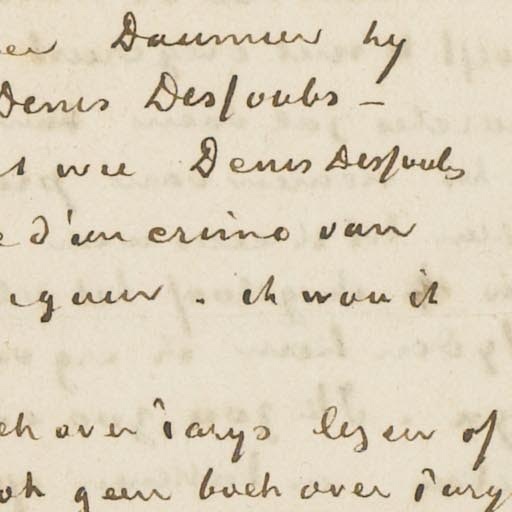 Daumier hy
Denis Dessoubs –
wie Denis Dessoubs
d'un crime van
ik wou it
over Parys lezen of
ook geen boek over Parys